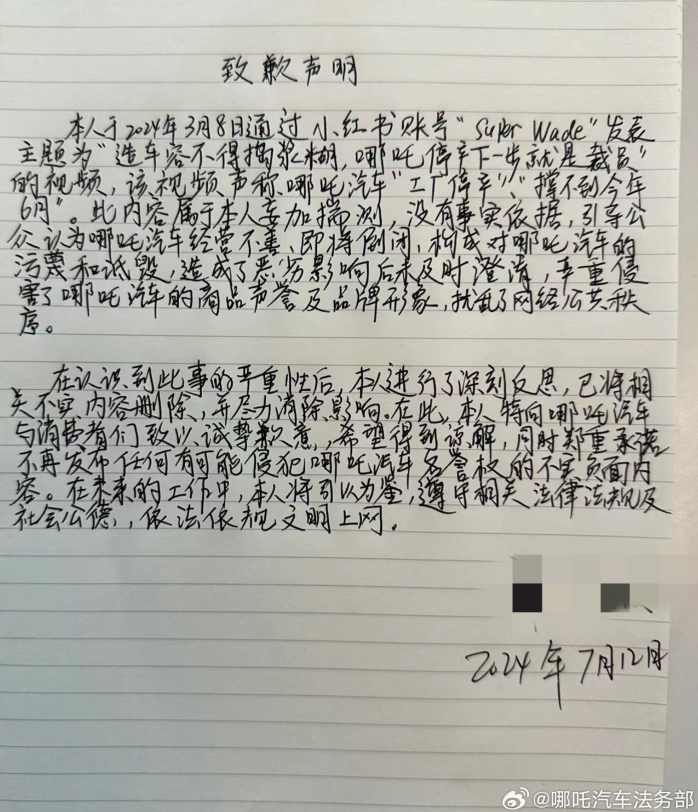 致歉声明
本人于2024年3月8日通过小红书账号“Super Wade”发表
主题为“造车容不得捣浆糊，哪吒停产下一步就是裁员”
的视频，该视频声称哪吒汽车“工厂停产”、“撑不到今年
6月”。此内容属于本人妄加揣测，没有事实依据，引导公
众认为哪吒汽车经营不善、即将倒闭，构成对哪吒汽车的
污蔑和诋毁，造成了恶劣影响后未及时澄清，严重侵
害了哪吒汽车的商品声誉及品牌形象，扰乱了网络公共秩
序。
在认识到此事的严重性后，本人进行了深刻反思，已将相
关不实内容删除，并尽力消除影响。在此，本人特向哪吒汽车
与消费者们致以诚挚歉意，希望得到谅解，同时郑重承诺
不再发布任何有可能侵犯哪吒汽车名誉权的不实负面内
容。在未来的工作中，本人将引以为鉴，遵守相关法律法规及
社会公德，依法依规文明上网。
2024年7月12日
@哪吒汽车法务部